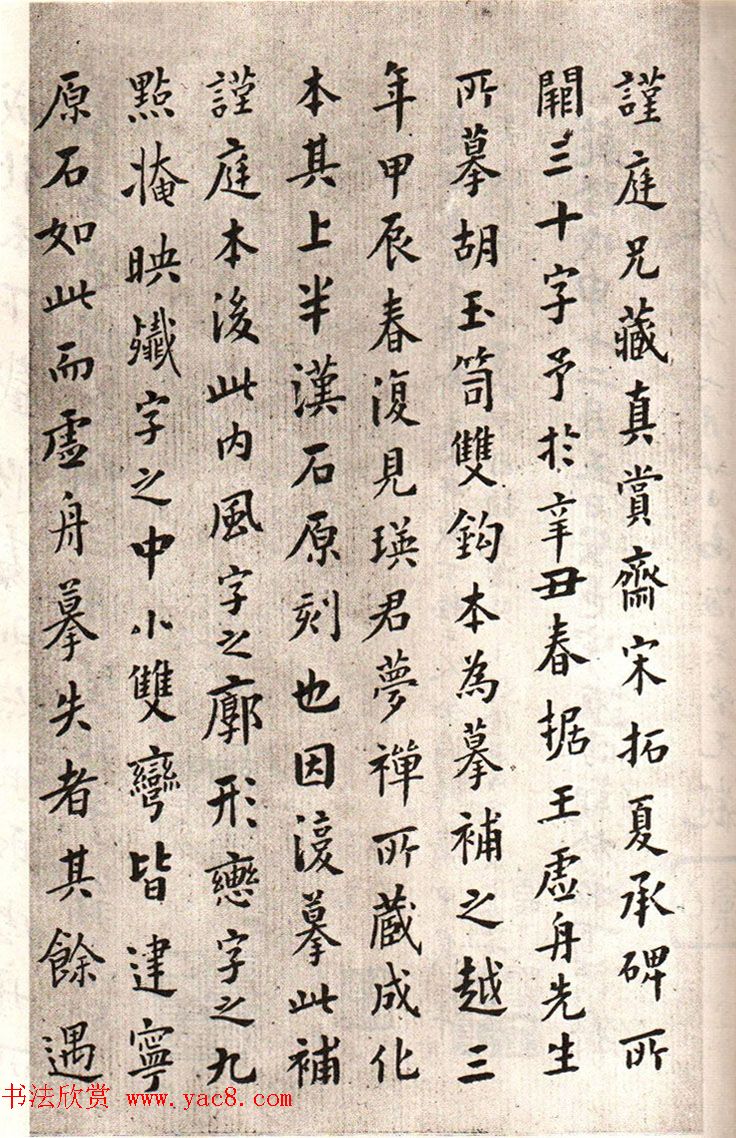 謹庭兄藏真賞齋宋拓夏承碑所
闕三十字予於辛丑春据王虛舟先生
所摹胡玉笥雙鈎本為摹補之越三
年甲辰春復見瑛君夢禪所藏成化
本其上半漢石原刻也因復摹此補
謹庭本後此内風字之廓形戀字之九
點掩映殲字之中小雙彎皆建寧
原石如此而虛舟摹失者其餘遇
书法欣赏 www.yac8.com